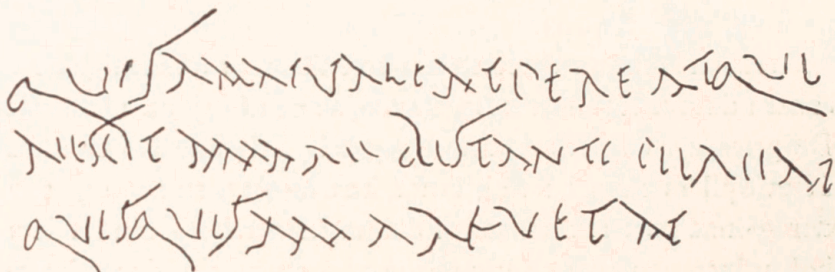 QUISAMATVALEATPEREATQUI
NESCITAMARE BISTANTI PEREAT
QUISQUISAMARE VETAT